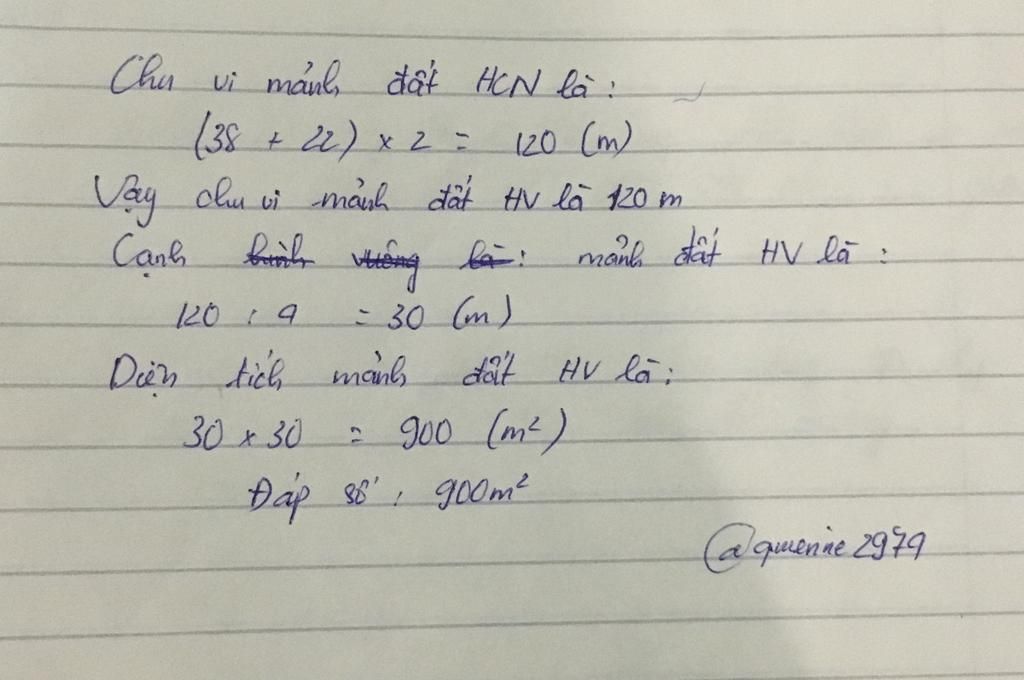 Chu vi mảnh đất HCN là:
(38 + 22) × 2 = 120 (m)
Vậy chu vi mảnh đất HV là 120 m
Cạnh hình vuông là: mảnh đất HV là:
120 : 4 = 30 (m)
Diện tích mảnh đất HV là:
30 × 30 = 900 (m²)
Đáp số: 900m²